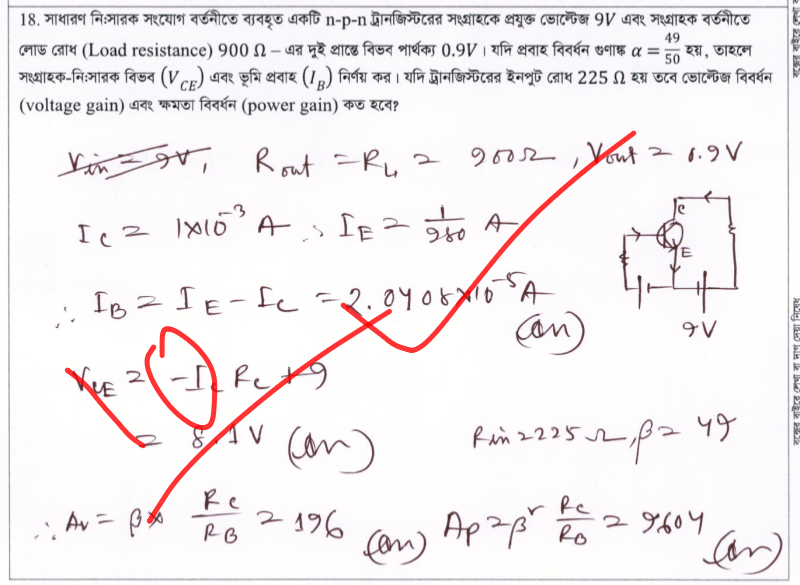 18. সাধারণ নিঃসারক সংযোগ বর্তনীতে ব্যবহৃত একটি n-p-n ট্রানজিস্টরের সংগ্রাহকে প্রযুক্ত ভোল্টেজ 9V এবং সংগ্রাহক বর্তনীতে
লোড রোধ (Load resistance) 900 Ω – এর দুই প্রান্তে বিভব পার্থক্য 0.9V । যদি প্রবাহ বিবর্ধন গুণাঙ্ক α = 49/50 হয়, তাহলে
সংগ্রাহক-নিঃসারক বিভব (V_CE) এবং ভূমি প্রবাহ (I_B) নির্ণয় কর। যদি ট্রানজিস্টরের ইনপুট রোধ 225 Ω হয় তবে ভোল্টেজ বিবর্ধন
(voltage gain) এবং ক্ষমতা বিবর্ধন (power gain) কত হবে?
Vin = 9V, Rout = RL = 900Ω, Vout = 0.9V
IC = 1×10⁻³ A ∴ IE = 1/980 A
C
E
9V
∴ IB = IE – IC = 2.0408×10⁻⁵ A
(an)
VCE = -IC RC + 9
= 8.1V (an) Rin = 225 Ω, β = 49
∴ Av = β× RC/RB = 196 (an) Ap = β² RC/RB = 9604 (an)